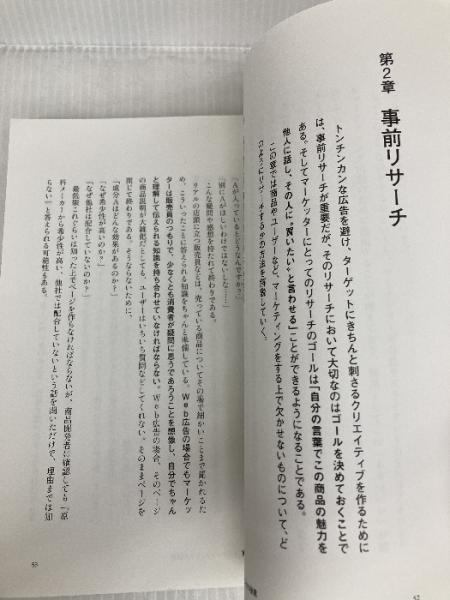 第2章 事前リサーチ
トンチンカンな広告を避け、ターゲットにきちんと刺さるクリエイティブを作るために
は、事前リサーチが重要だが、そのリサーチにおいて大切なのはゴールを決めておくことで
ある。そしてマーケッターにとってのリサーチのゴールは「自分の言葉でこの商品の魅力を
他人に話し、その人に“買いたい”と言わせる」ことができるようになることである。
この章では商品やユーザーなど、マーケティングをする上で欠かせないものについて、ど
52
「Aが入っているとどうなんですか?」
「別にAがほしいわけではないしな……」
こんな疑問や感想を持たれて終わりである。
リアルの店頭に立つ販売員などは、売っている商品についてその場で細かいことまで聞かれるた
め、こういったことに答えられる知識をちゃんと準備している。Web広告の場合でもマーケッ
ターは販売員のつもりで、少なくとも消費者が疑問に思うであろうことを想像し、自分でちゃん
と理解して伝えられる知識を持ち合わせていなければならない。Web広告の場合、そのページ
の商品説明が大雑把だとしても、ユーザーはいちいち質問などしてくれない。そのままページを
閉じて終わりである。そうならないために、
「成分Aはどんな効果があるのか?」
「なぜ希少性が高いのか?」
「なぜ他社は配合していないのか?」
最低限これぐらいは知った上でページを作らなければならないが、商品開発者に確認しても「原
料メーカーから希少性が高い、他社では配合していないという話を聞いただけで、理由までは知
らない」と答えられる可能性もある。
53